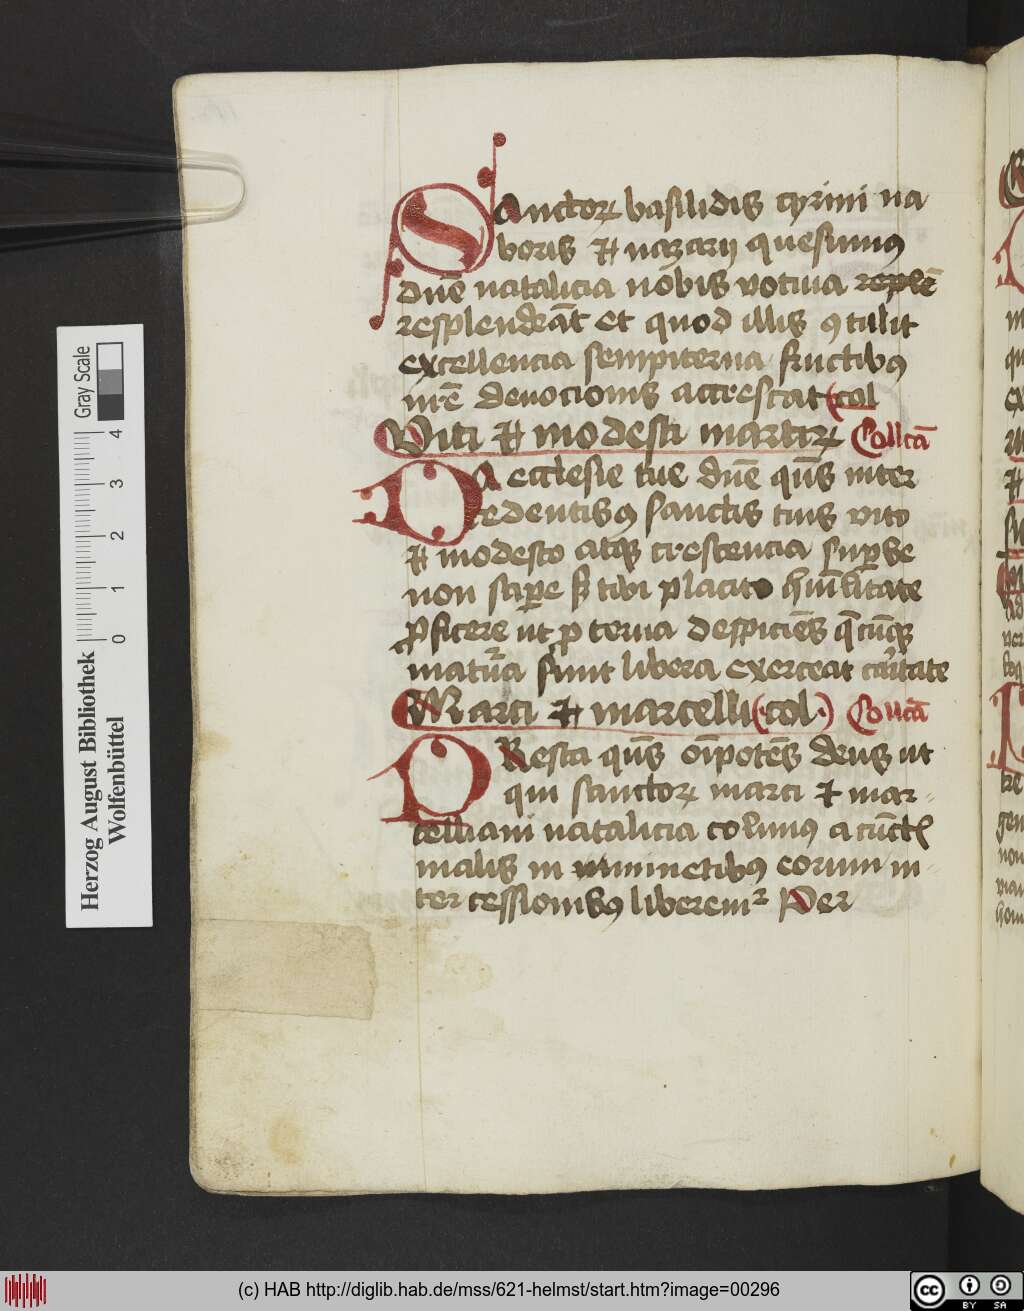 Sanctoꝝ basilidis cyrini na
boris ⁊ nazarij quesumꝰ
dn̄e natalicia nobis votiua reple̅
resplendeāt et quod illis ꝯtulit
excellencia sempiterna fructibꝰ
nr̄e deuocionis accrescat col
Viti ⁊ modesti martirꝝ Collc̄a
Da ecclesie tue dn̄e qs̄ inter
cedentibꝰ sanctis tuis vito
⁊ modesto atqꝫ crescencia suꝑbe
non saꝑe sꝫ tibi placito hūilitate
ꝓficere ut ꝓterua despiciēs q̄cūqꝫ
matura sunt libera exerceat caritate
Marci ⁊ marcelli (col) Collc̄a
PResta qs̄ oīpotēs deus ut
qui sanctoꝝ marci ⁊ mar-
celliani natalicia colimꝰ a cūctis
malis in imminētibꝰ eorum in-
tercessionibꝰ liberemur Per
Herzog August Bibliothek
Wolfenbüttel
0 1 2 3 4
Gray Scale
(c) HAB http://diglib.hab.de/mss/621-helmst/start.htm?image=00296
cc BY SA